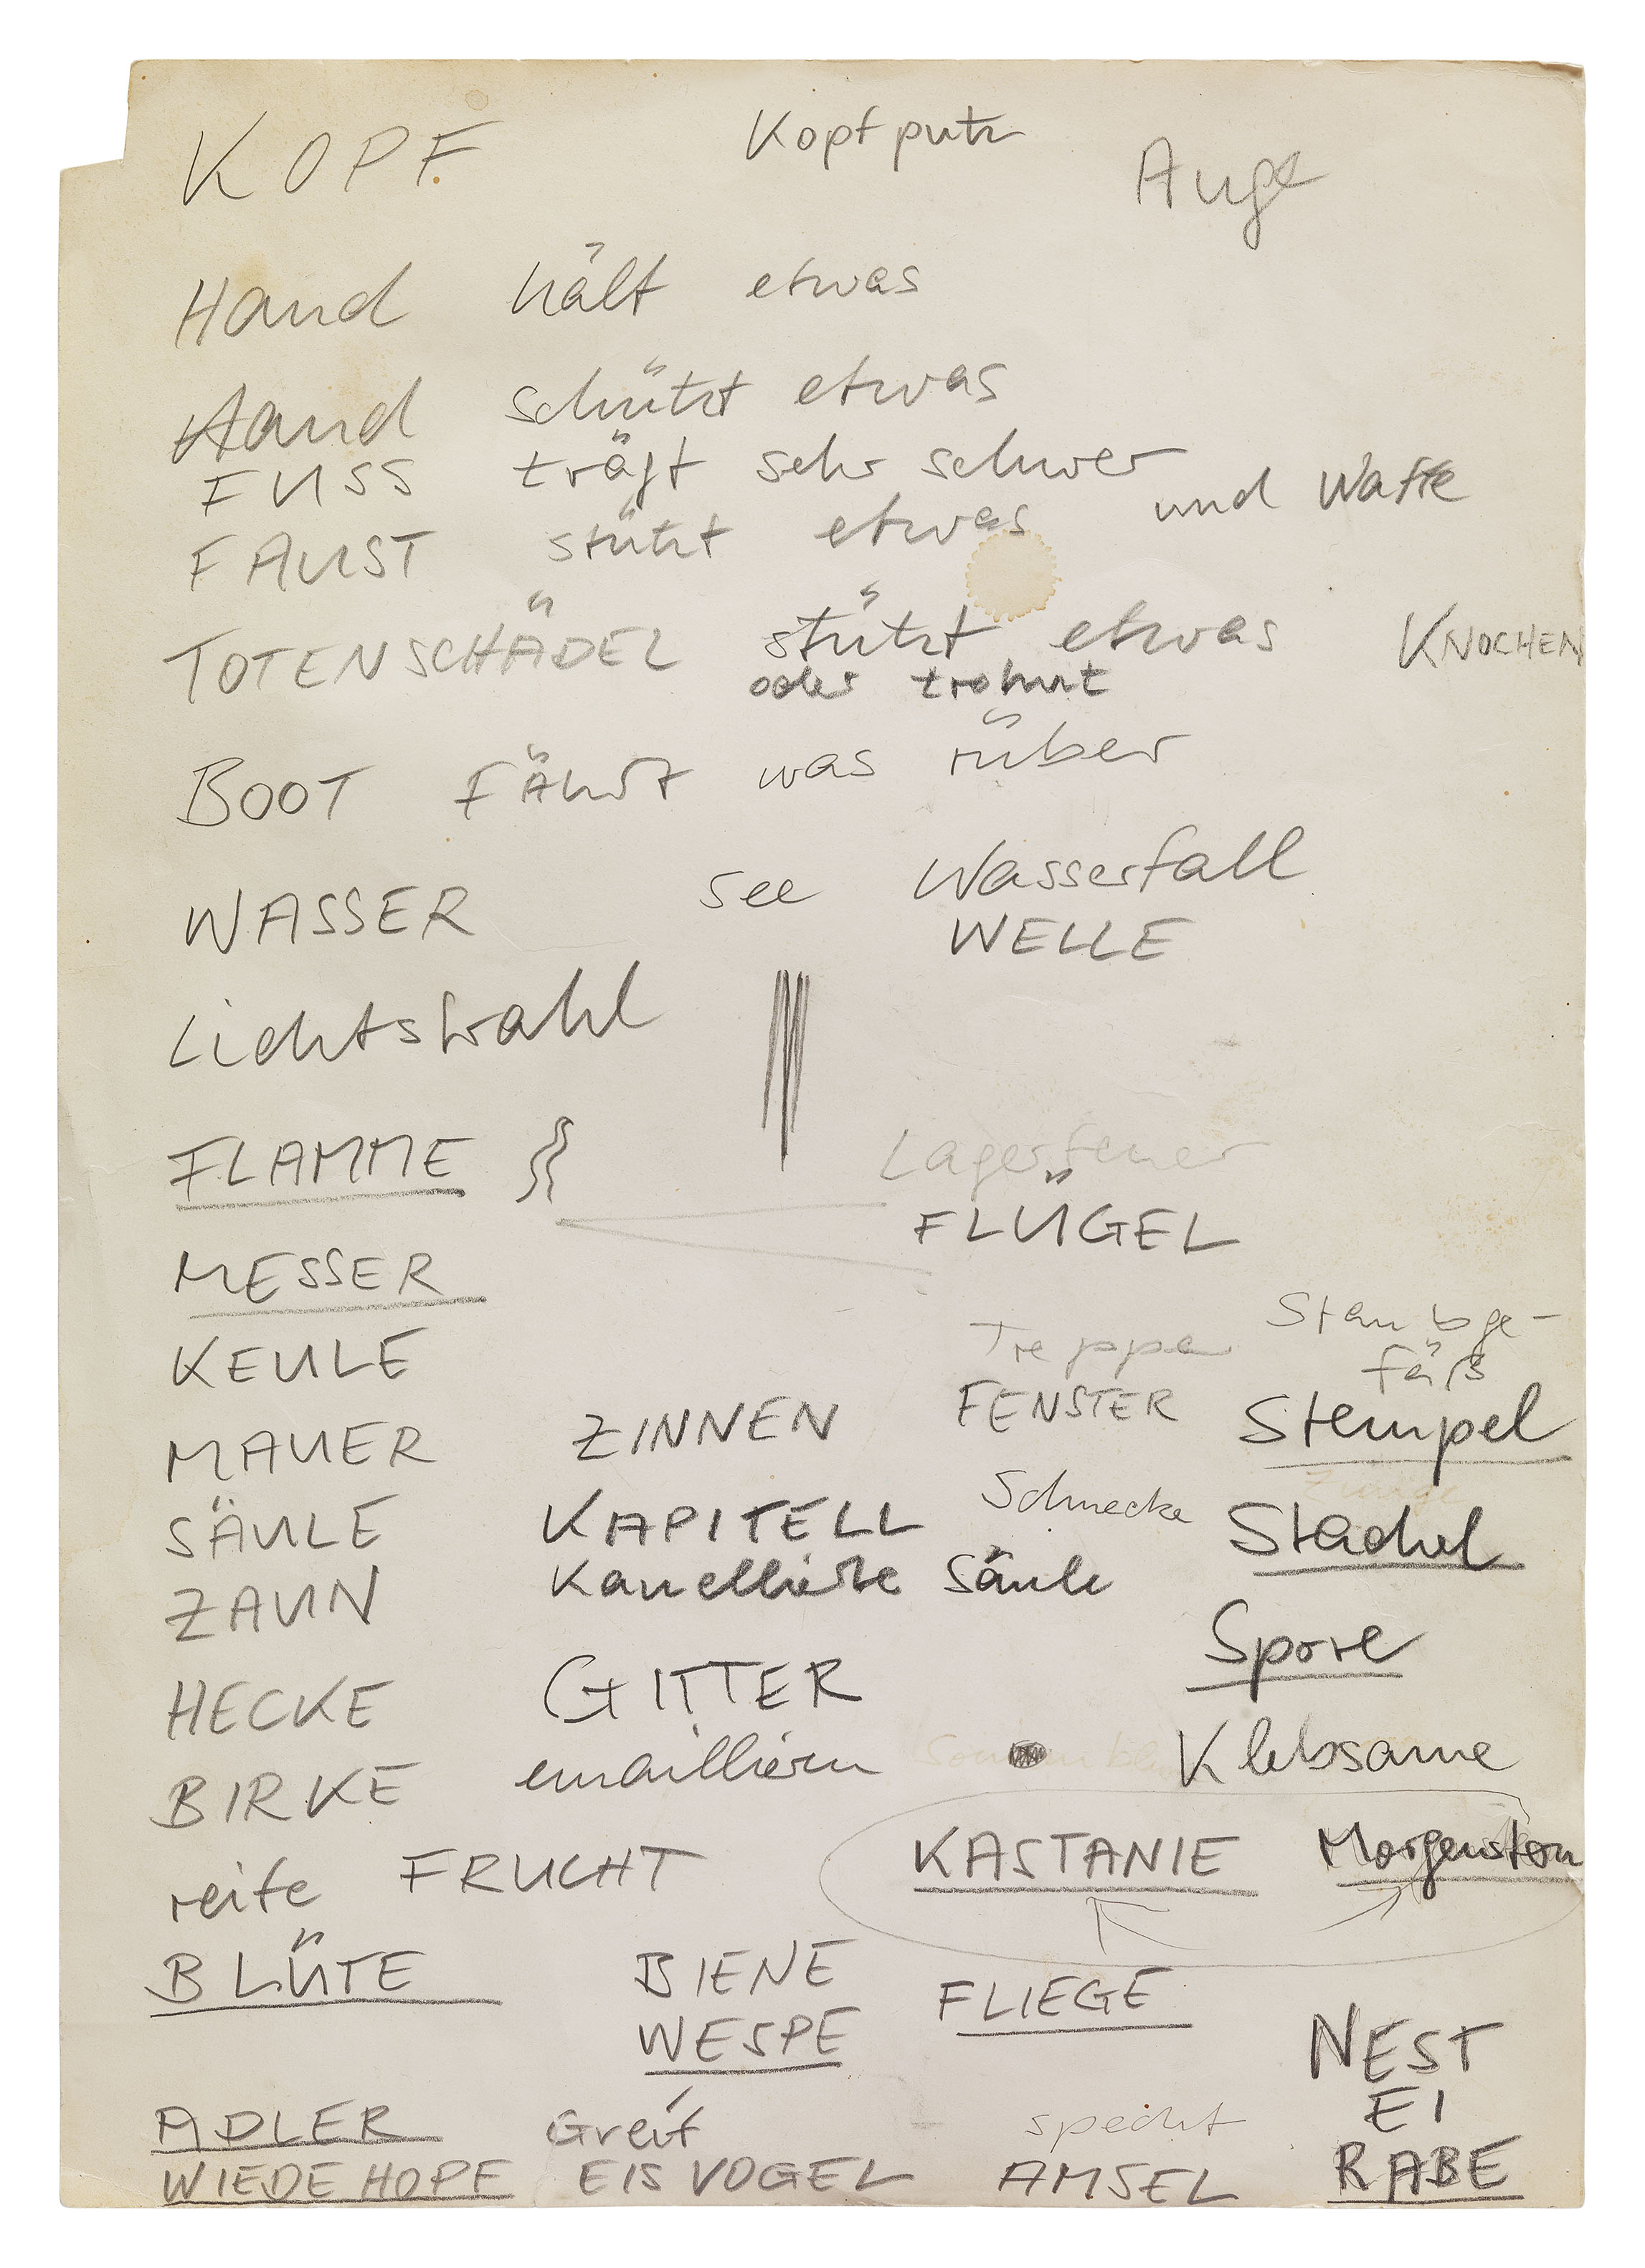 KOPF Kopfputz Auge
Hand hält etwas
Hand schützt etwas
FUSS trägt sehr schwer und Waffe
FAUST stützt etwas
TOTENSCHÄDEL stützt etwas KNOCHEN
oder trohnt
BOOT FÄhrt was rüber
WASSER See Wasserfall
WELLE
Lichtstrahl
FLAMME Lagerfeuer
FLÜGEL
MESSER
Staubge-
fäß
KEULE Treppe
MAUER ZINNEN FENSTER Stempel
SÄULE KAPITELL Schnecke Stachel
ZAUN Kanellierte Säule
Spore
HECKE GITTER
BIRKE emailliern Klebsame
reife FRUCHT KASTANIE Morgenstern
BLÜTE BIENE FLIEGE
WESPE NEST
EI
ADLER Greif specht
WIEDEHOPF EISVOGEL AMSEL RABE